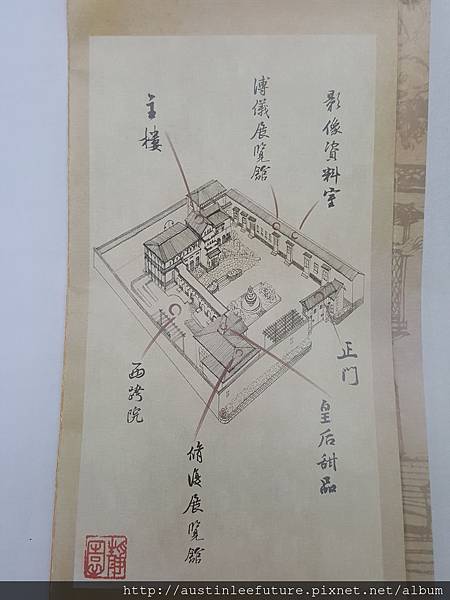 主樓
溥儀展覽館
影像資料室
西跨院
脩復展覽館
皇后甜品
正门
靜園
http://austinleefuture.pixnet.net/album